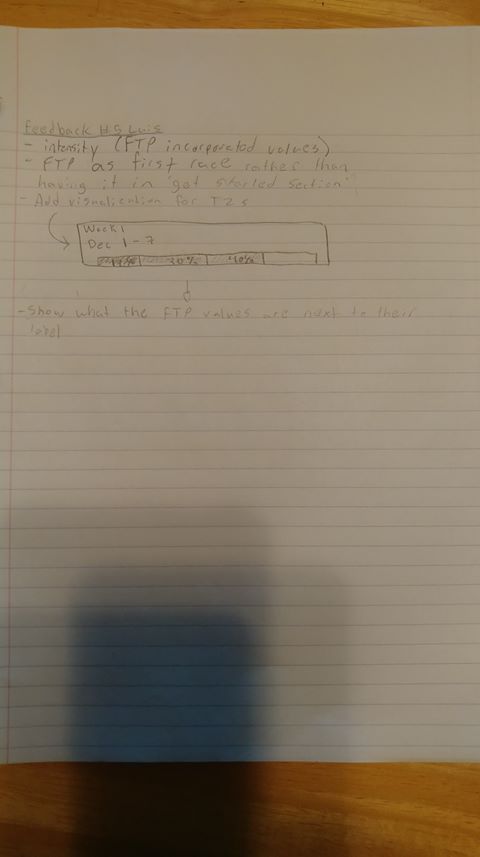 Feedback H.S Luis
- intensity (FTP incorporated values)
- FTP as first race rather than
having it in "get started section"
- Add visualication for TZs
Week 1
Dec 1 - 7
30% 40%
- Show what the FTP values are next to their
label